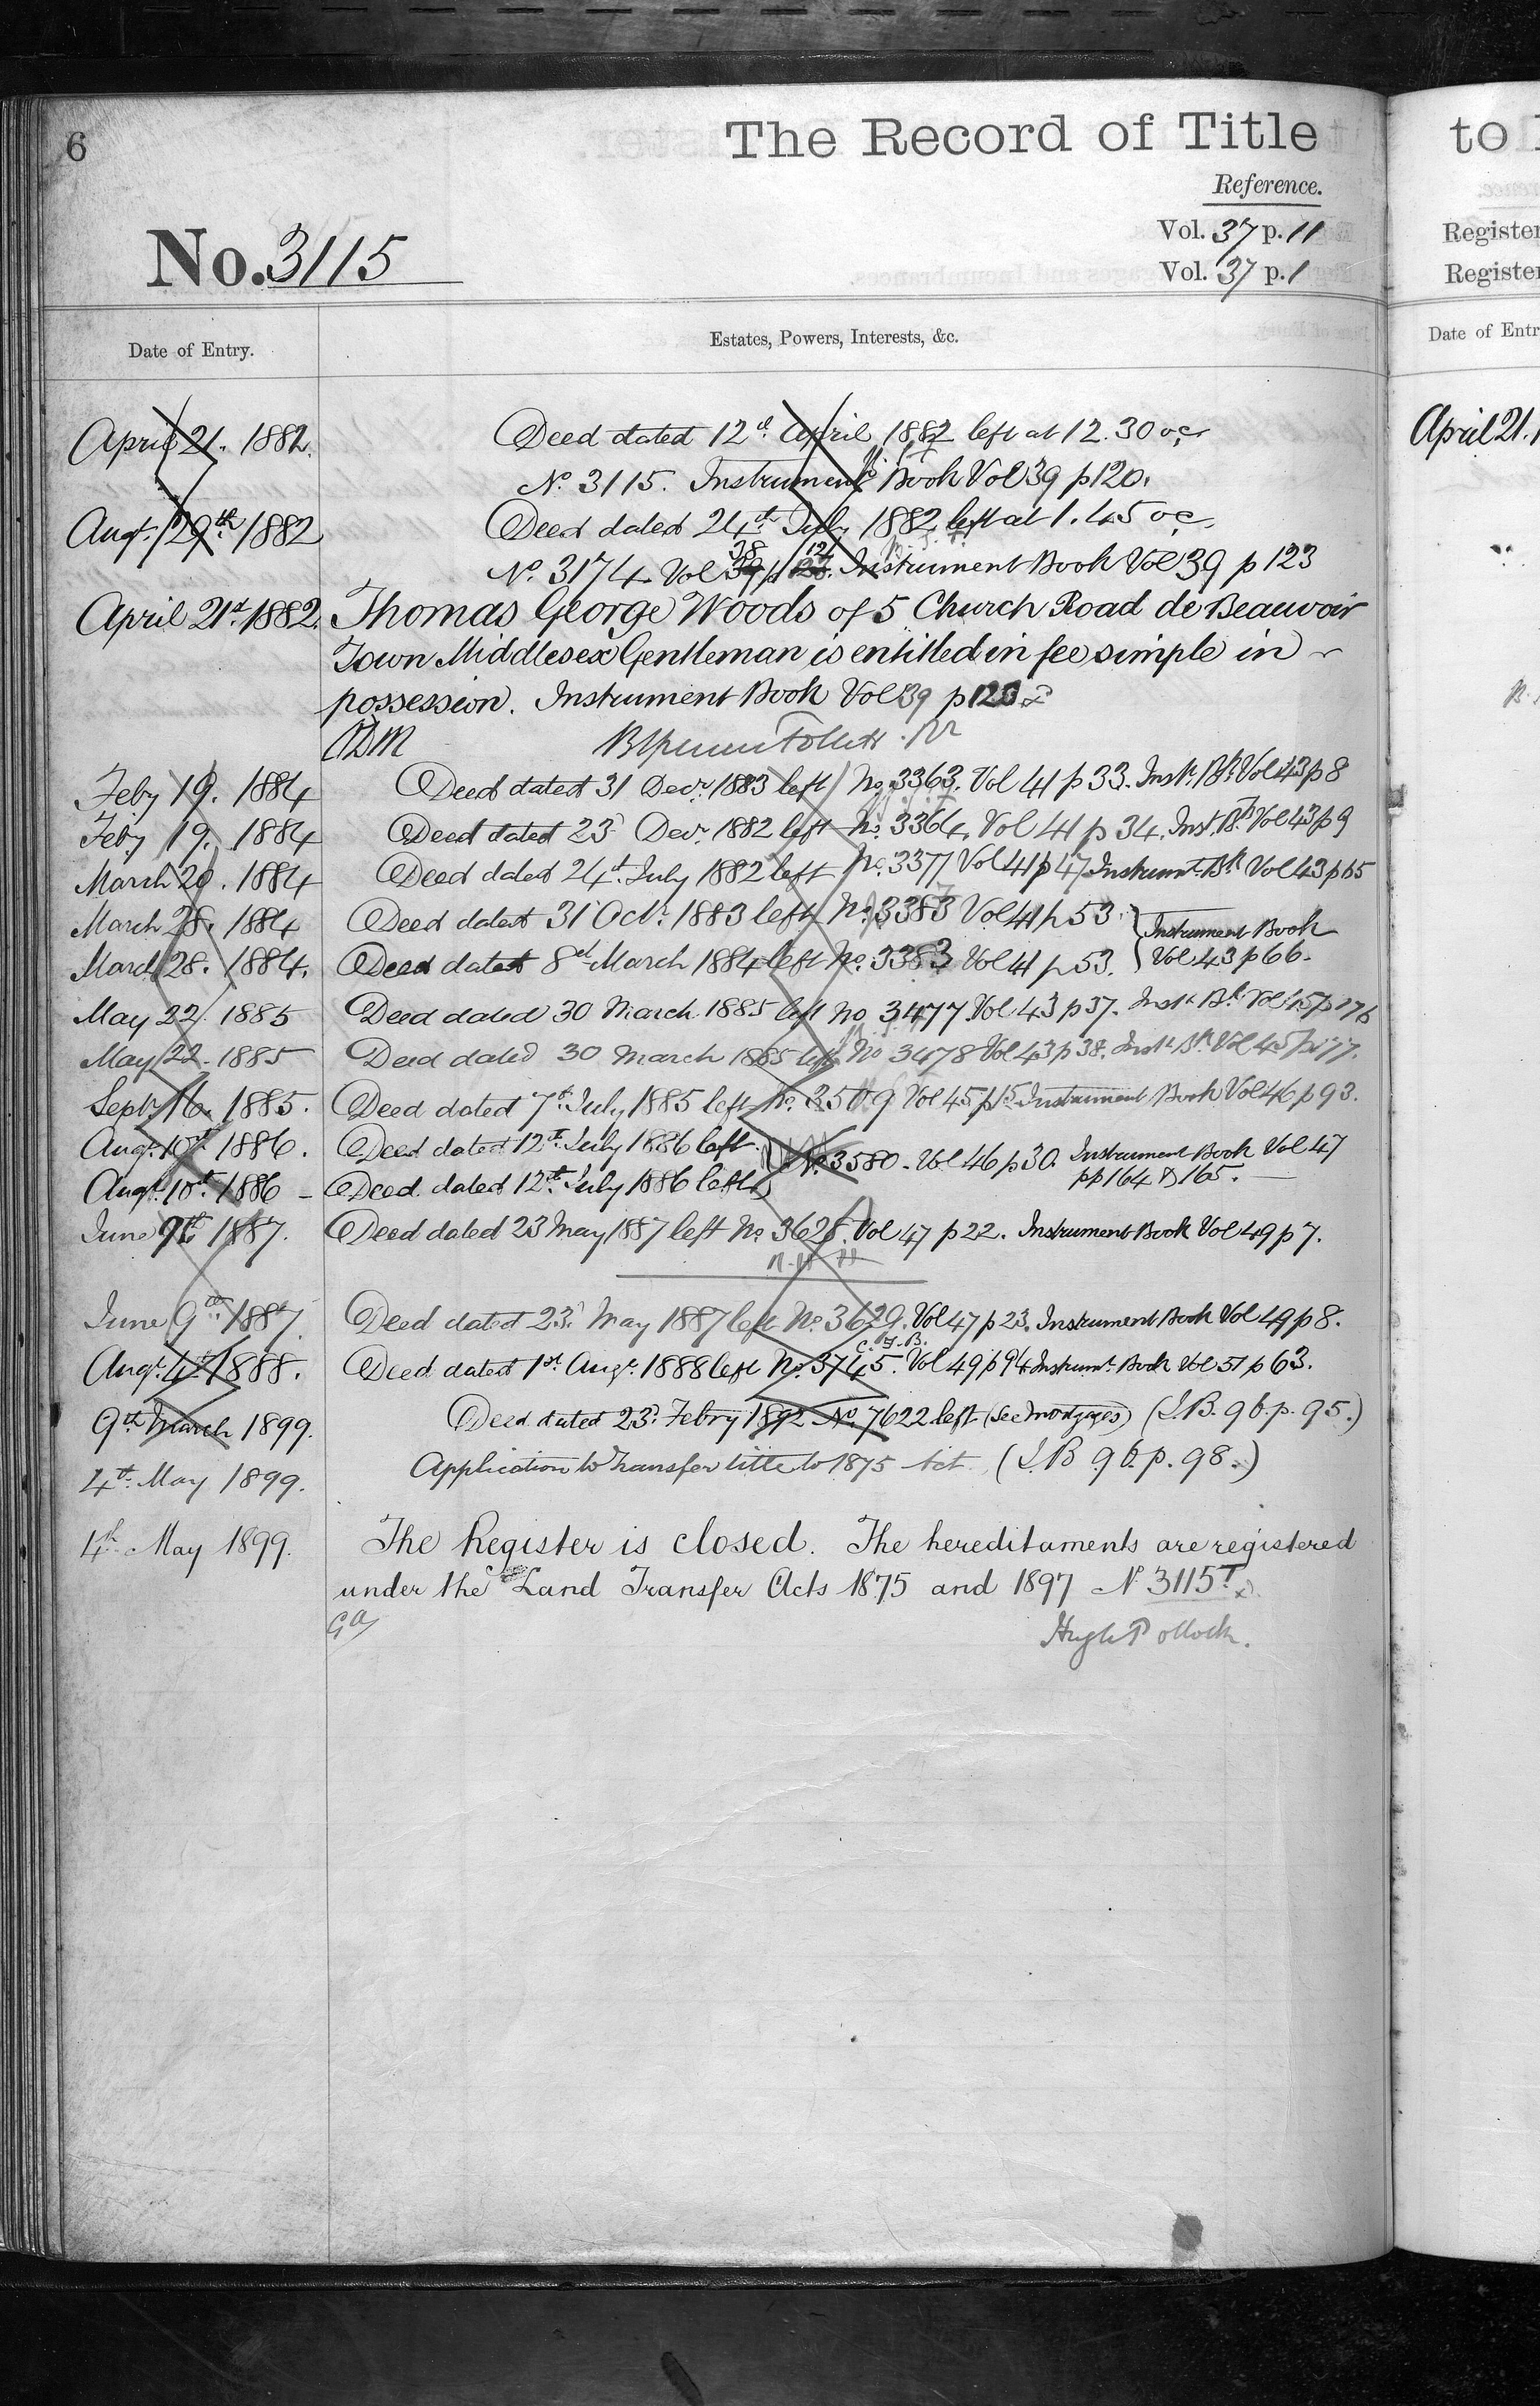 6
The Record of Title
Reference.
Vol. 37 p. 11
Vol. 37 p. 1
No. 3115
Date of Entry.
Estates, Powers, Interests, &c.
April 21. 1882.
Deed dated 12th April 1882 left at 12.30 oc
No. 3115. Instrument Book Vol 39 p 120.
Augt. 29th 1882
Deed dated 24th July 1882 left at 1.45 oc.
No. 3174 Vol 38 p 121. Instrument Book Vol 39 p 123
April 21st 1882.
Thomas George Woods of 5 Church Road de Beauvoir
Town Middlesex Gentleman is entitled in fee simple in
possession. Instrument Book Vol 39 p 120
Feby 19. 1884
Deed dated 31 Decr. 1883 left No. 3363. Vol 41 p 33. Inst. Bk. Vol 43 p 8
Feby 19. 1884
Deed dated 23d Decr. 1882 left No. 3364. Vol 41 p 34. Inst. Bk. Vol 43 p 9
March 20. 1884
Deed dated 24th July 1882 left No. 3377 Vol 41 p 47 Instrumt. Bk Vol 43 p 65
March 28. 1884
Deed dated 31 Octr. 1883 left No. 3383 Vol 41 p 53.
March 28. 1884.
Deed dated 8th March 1884 left No. 3383 Vol 41 p 53.
Instrument Book
Vol 43 p 66.
May 22. 1885
Deed dated 30 March 1885 left No 3477 Vol 43 p 37. Inst. Bk. Vol 45 p 176
May 22. 1885
Deed dated 30 March 1885 left No 3478 Vol 43 p 38. Inst. Bk. Vol 45 p 177.
Septr. 16. 1885.
Deed dated 7th July 1885 left No. 3509 Vol 45 p 15 Instrument Book Vol 46 p 93.
Augt. 10th 1886.
Deed dated 12th July 1886 left
Augt. 10th 1886 -
Deed dated 12th July 1886 left
No. 3580. Vol 46 p 30. Instrument Book Vol 47
pp 164 & 165.
June 9th 1887.
Deed dated 23 May 1887 left No. 3628. Vol 47 p 22. Instrument Book Vol 49 p 7.
June 9th 1887
Deed dated 23d May 1887 left No. 3629. Vol 47 p 23. Instrument Book Vol 49 p 8.
Augt. 4th 1888.
Deed dated 1st Augt. 1888 left No. 3745. Vol 49 p 94 Instrumt. Book Vol 51 p 63.
9th March 1899.
Deed dated 23d Febry 1892 No. 7622 left (see mortgages) (I.B. 96. p. 95.)
4th May 1899.
Application to transfer title to 1875 Act (I.B 96. p. 98.)
4th May 1899.
The Register is closed. The hereditaments are registered
under the Land Transfer Acts 1875 and 1897 No 3115T
Hugh Pollock.
to
Register
Register
Date of Entr
April 21.